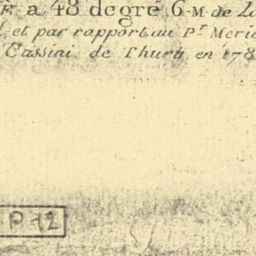 a 48 degré 6 M de
et par rapport au P.r Meri
Cassini de Thury en 178
P 12